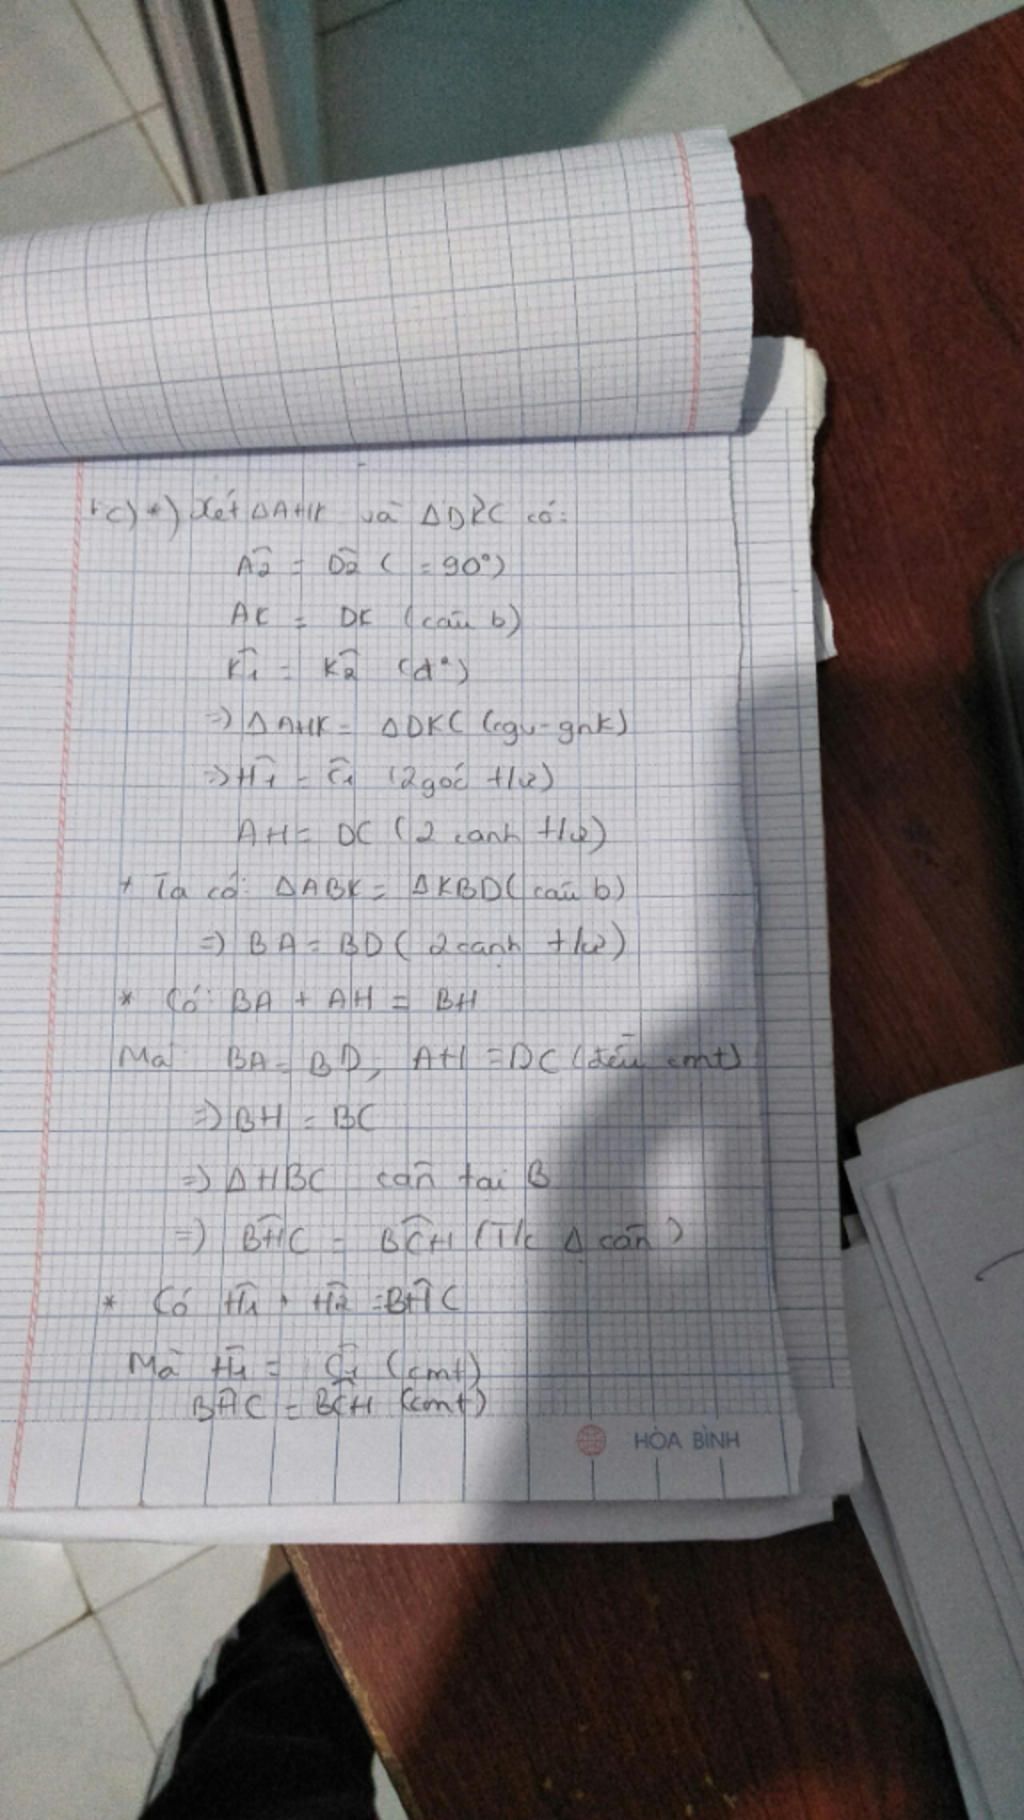 c) *) Xét ΔAHK và ΔDKC có:
Â2 = D̂2 ( = 90°)
AK = DK (câu b)
K̂1 = K̂2 (đ²)
=> ΔAHK = ΔDKC (cgv - gnk)
=> Ĥ1 = Ĉ1 (2 góc t/ứ)
AH = DC ( 2 cạnh t/ứ)
+ Ta có: ΔABK = ΔKBD ( câu b)
=> BA = BD ( 2 cạnh t/ứ)
* Có: BA + AH = BH
Mà BA = BD, AH = DC (đều cmt)
=> BH = BC
=> ΔHBC cân tại B
=> BĤC = BĈH (T/c Δ cân )
* Có Ĥ1 + Ĥ2 = BĤC
Mà Ĥ1 = Ĉ1 (cmt)
BĤC = BĈH (cmt)
HÒA BÌNH